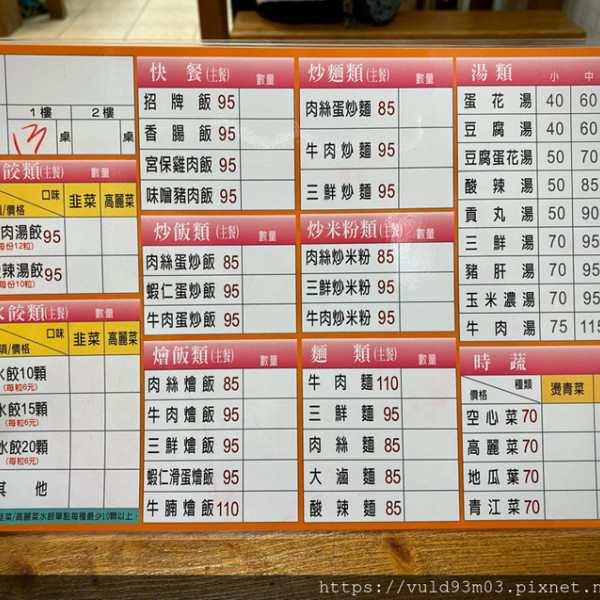 1樓 2樓
13桌 桌
餃類(主餐) 數量
口味 韭菜 高麗菜
類/價格
肉湯餃95
(每份12粒)
辣湯餃95
(每份10粒)
水餃類(主餐) 數量
口味 韭菜 高麗菜
類/價格
水餃10顆
(每粒6元)
水餃15顆
(每粒6元)
水餃20顆
(每粒6元)
其他
韭菜/高麗菜水餃單點每種最少10顆以上。
快餐(主餐) 數量
招牌飯 95
香腸飯 95
宮保雞肉飯 95
味噌豬肉飯 95
炒飯類(主餐) 數量
肉絲蛋炒飯 85
蝦仁蛋炒飯 95
牛肉蛋炒飯 95
燴飯類(主餐) 數量
肉絲燴飯 85
牛肉燴飯 95
三鮮燴飯 95
蝦仁滑蛋燴飯 95
牛腩燴飯 110
炒麵類(主餐) 數量
肉絲蛋炒麵 85
牛肉炒麵 95
三鮮炒麵 95
炒米粉類(主餐) 數量
肉絲炒米粉 85
三鮮炒米粉 95
牛肉炒米粉 95
麵類(主餐) 數量
牛肉麵 110
三鮮麵 95
肉絲麵 85
大滷麵 85
酸辣麵 85
湯類 小 中
蛋花湯 40 60
豆腐湯 40 60
豆腐蛋花湯 50 70
酸辣湯 50 85
貢丸湯 50 90
三鮮湯 70 95
豬肝湯 70 95
玉米濃湯 70 95
牛肉湯 75 115
時蔬
種類 燙青菜
價格
空心菜 70
高麗菜 70
地瓜葉 70
青江菜 70
https://vuld93m03.pixnet.n